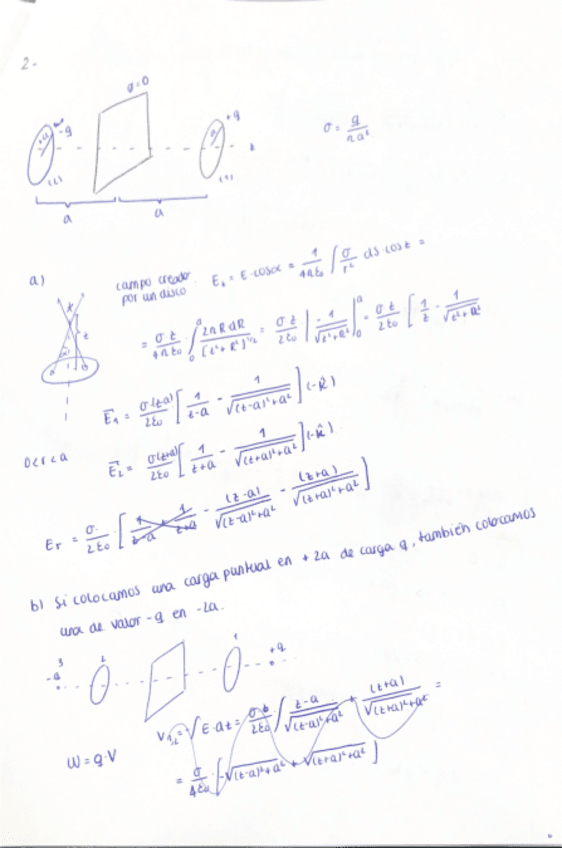 2-
σ=0
-q
+q
σ = q / πa²
(2)
(1)
a
a
a)
campo creado por un disco
E₁ = E·cosα = 1/4πε₀ ∫ σ/r² ds·cosα =
= σ·z/4πε₀ ∫₀ᵃ 2πR dR/[z²+R²]^(3/2) = σ z/2ε₀ | -1/√(z²+R²) |₀ᵃ = σ z/2ε₀ [1/z - 1/√(z²+a²)]
E⃗₁ = σ(z-a)/2ε₀ [1/(z-a) - 1/√((z-a)²+a²)] (-k̂)
0<z<a
E⃗₂ = σ(z+a)/2ε₀ [1/(z+a) - 1/√((z+a)²+a²)] (-k̂)
E_T = σ/2ε₀ [ - (z-a)/√((z-a)²+a²) - (z+a)/√((z+a)²+a²) ]
b) Si colocamos una carga puntual en +2a de carga q, también colocamos
una de valor -q en -2a.
3
2
1
-q
+q
V₁,₂ = ∫E·dz = σ z/2ε₀ ∫ (z-a)/√((z-a)²+a²) + (z+a)/√((z+a)²+a²) =
W = q·V
= σ/4ε₀ [-√((z-a)²+a²) + √((z+a)²+a²)]